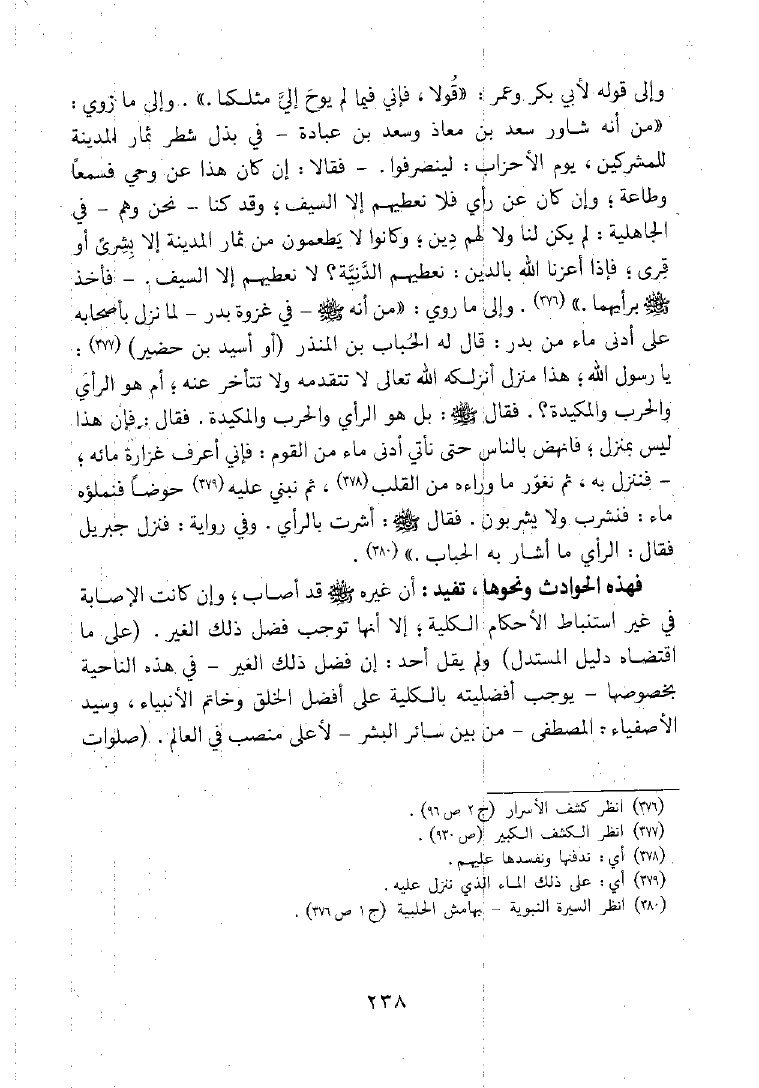 وإلى قوله لأبي بكر وعمر : «قُولا ، فإني فيما لم يوحَ إليَّ مثلكما .» . وإلى ما رُوي :
«من أنه شاور سعد بن معاذ وسعد بن عبادة – في بذل شطر ثمار المدينة
للمشركين ، يوم الأحزاب : لينصرفوا . – فقالا : إن كان هذا عن وحي فسمعاً
وطاعة ؛ وإن كان عن رأي فلا نعطيهم إلا السيف ؛ وقد كنا – نحن وهم – في
الجاهلية : لم يكن لنا ولا لهم دِين ؛ وكانوا لا يَطعمون من ثمار المدينة إلا بِشِرىً أو
قِرى ؛ فإذا أعزنا الله بالدين : نعطيهم الدَّنِيَّة؟ لا نعطيهم إلا السيف . – فأخذ
ﷺ برأيهما .» (٣٧٦) . وإلى ما روي : «من أنه ﷺ – في غزوة بدر – لما نزل بأصحابه
على أدنى ماء من بدر : قال له الحُباب بن المنذر (أو أسيد بن حضير) (٣٧٧) :
يا رسول الله ؛ هذا منزل أنزلكه الله تعالى لا تتقدمه ولا تتأخر عنه ؛ أم هو الرأي
والحرب والمكيدة؟ . فقال ﷺ : بل هو الرأي والحرب والمكيدة . فقال : فإن هذا
ليس بمنزل ؛ فانهض بالناس حتى نأتي أدنى ماء من القوم : فإني أعرف غزارة مائه ؛
– فننزل به ، ثم نغوّر ما وراءه من القلب (٣٧٨) ، ثم نبني عليه (٣٧٩) حوضاً فنملؤه
ماء : فنشرب ولا يشربون . فقال ﷺ : أشرت بالرأي . وفي رواية : فنزل جبريل
فقال : الرأي ما أشار به الحباب .» (٣٨٠) .
فهذه الحوادث ونحوها ، تفيد : أن غيره ﷺ قد أصاب ؛ وإن كانت الإصابة
في غير استنباط الأحكام الكلية ؛ إلا أنها توجب فضل ذلك الغير . (على ما
اقتضاه دليل المستدل) ولم يقل أحد : إن فضل ذلك الغير – في هذه الناحية
بخصوصها – يوجب أفضليته بالكلية على أفضل الخلق وخاتم الأنبياء ، وسيد
الأصفياء : المصطفى – من بين سائر البشر – لأعلى منصب في العالم . (صلوات
(٣٧٦) انظر كشف الأسرار (ج ٢ ص ٩٦) .
(٣٧٧) انظر الكشف الكبير (ص ٩٣٠) .
(٣٧٨) أي : ندفنها ونفسدها عليهم .
(٣٧٩) أي : على ذلك الماء الذي ننزل عليه .
(٣٨٠) انظر السيرة النبوية – بهامش الحلبية (ج ١ ص ٣٧٦) .
٢٣٨